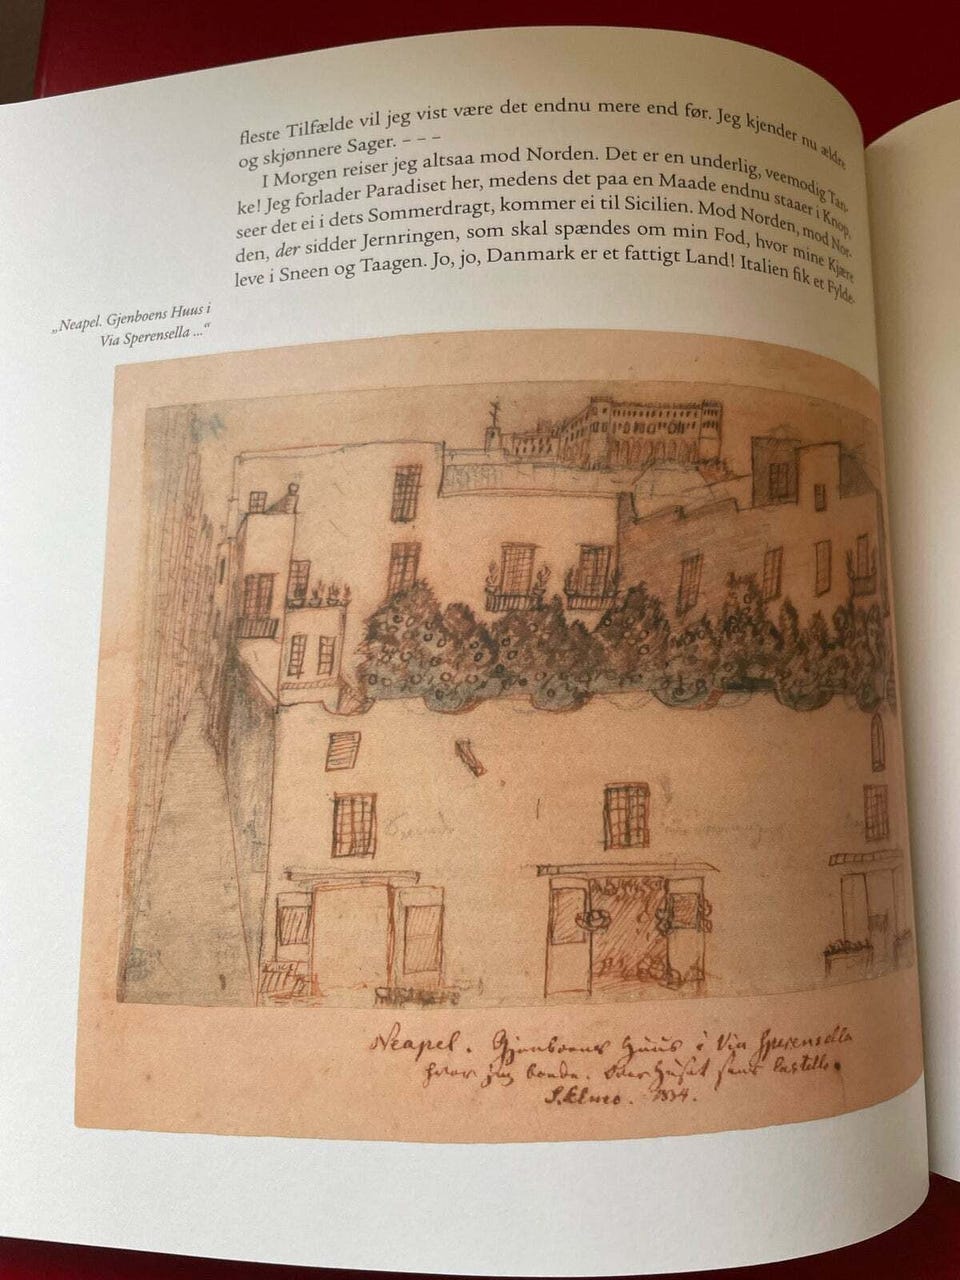 fleste Tilfælde vil jeg vist være det endnu mere end før. Jeg kjender nu ældre
og skjønnere Sager. – – –
I Morgen reiser jeg altsaa mod Norden. Det er en underlig, veemodig Tan-
ke! Jeg forlader Paradiset her, medens det paa en Maade endnu staaer i Knop,
seer det ei i dets Sommerdragt, kommer ei til Sicilien. Mod Norden, mod Nor-
den, der sidder Jernringen, som skal spændes om min Fod, hvor mine Kjære
leve i Sneen og Taagen. Jo, jo, Danmark er et fattigt Land! Italien fik et Fylde-
„Neapel. Gjenboens Huus i
Via Sperensella ...“
Neapel. Gjenboens Huus i Via Sperensella
hvor jeg boede. Over Huset sees Castello
S. Elmo. 1834.